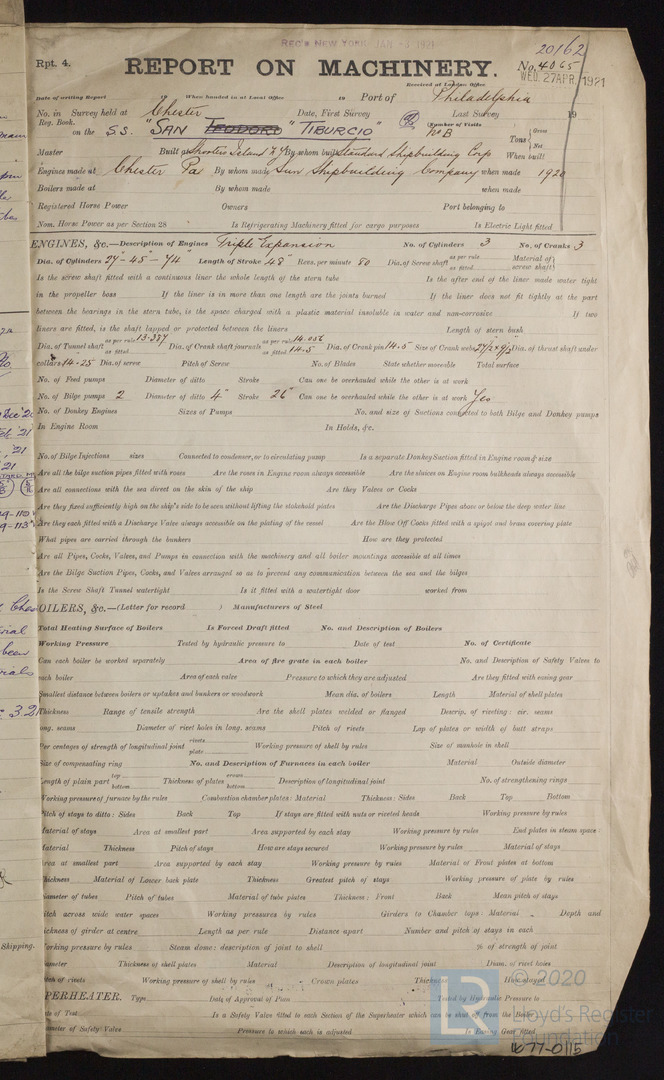 REC'D NEW YORK JAN -3 1921
20162
Rpt. 4.
REPORT ON MACHINERY.
No. 4065
Received at London Office WED. 27 APR. 1921
Date of writing Report 19 When handed in at Local Office 19 Port of Philadelphia
No. in Survey held at Chester Date, First Survey Last Survey 19
Reg. Book. (Number of Visits
on the S.S. "SAN TEODORO" TIBURCIO" Tons { Gross Net
Master Built at Shooters Island N.Y. By whom built Standard Shipbuilding Corp When built
Engines made at Chester Pa By whom made Sun Shipbuilding Company when made 1920
Boilers made at By whom made when made
Registered Horse Power Owners Port belonging to
Nom. Horse Power as per Section 28 Is Refrigerating Machinery fitted for cargo purposes Is Electric Light fitted
ENGINES, &c.—Description of Engines Triple Expansion No. of Cylinders 3 No. of Cranks 3
Dia. of Cylinders 27-45-74" Length of Stroke 48" Revs. per minute 80 Dia. of Screw shaft as per rule as fitted Material of screw shaft
Is the screw shaft fitted with a continuous liner the whole length of the stern tube Is the after end of the liner made water tight
in the propeller boss If the liner is in more than one length are the joints burned If the liner does not fit tightly at the part
between the bearings in the stern tube, is the space charged with a plastic material insoluble in water and non-corrosive If two
liners are fitted, is the shaft lapped or protected between the liners Length of stern bush
Dia. of Tunnel shaft as per rule 13.387 as fitted Dia. of Crank shaft journals as per rule 14.056 as fitted 14.5" Dia. of Crank pin 14.5" Size of Crank webs 27½ x 9½ Dia. of thrust shaft under
collars 14.25 Dia. of screw Pitch of Screw No. of Blades State whether moveable Total surface
No. of Feed pumps Diameter of ditto Stroke Can one be overhauled while the other is at work
No. of Bilge pumps 2 Diameter of ditto 4" Stroke 26" Can one be overhauled while the other is at work Yes
No. of Donkey Engines Sizes of Pumps No. and size of Suctions connected to both Bilge and Donkey pumps
In Engine Room In Holds, &c.
No. of Bilge Injections sizes Connected to condenser, or to circulating pump Is a separate Donkey Suction fitted in Engine room & size
Are all the bilge suction pipes fitted with roses Are the roses in Engine room always accessible Are the sluices on Engine room bulkheads always accessible
Are all connections with the sea direct on the skin of the ship Are they Valves or Cocks
Are they fixed sufficiently high on the ship's side to be seen without lifting the stokehold plates Are the Discharge Pipes above or below the deep water line
Are they each fitted with a Discharge Valve always accessible on the plating of the vessel Are the Blow Off Cocks fitted with a spigot and brass covering plate
What pipes are carried through the bunkers How are they protected
Are all Pipes, Cocks, Valves, and Pumps in connection with the machinery and all boiler mountings accessible at all times
Are the Bilge Suction Pipes, Cocks, and Valves arranged so as to prevent any communication between the sea and the bilges
Is the Screw Shaft Tunnel watertight Is it fitted with a watertight door worked from
OILERS, &c.—(Letter for record ) Manufacturers of Steel
Total Heating Surface of Boilers Is Forced Draft fitted No. and Description of Boilers
Working Pressure Tested by hydraulic pressure to Date of test No. of Certificate
Can each boiler be worked separately Area of fire grate in each boiler No. and Description of Safety Valves to
each boiler Area of each valve Pressure to which they are adjusted Are they fitted with easing gear
Smallest distance between boilers or uptakes and bunkers or woodwork Mean dia. of boilers Length Material of shell plates
Thickness Range of tensile strength Are the shell plates welded or flanged Descrip. of riveting: cir. seams
long. seams Diameter of rivet holes in long. seams Pitch of rivets Lap of plates or width of butt straps
Per centages of strength of longitudinal joint rivets plate Working pressure of shell by rules Size of manhole in shell
Size of compensating ring No. and Description of Furnaces in each boiler Material Outside diameter
Length of plain part top bottom Thickness of plates crown bottom Description of longitudinal joint No. of strengthening rings
Working pressure of furnace by the rules Combustion chamber plates: Material Thickness: Sides Back Top Bottom
Pitch of stays to ditto: Sides Back Top If stays are fitted with nuts or riveted heads Working pressure by rules
Material of stays Area at smallest part Area supported by each stay Working pressure by rules End plates in steam space:
Material Thickness Pitch of stays How are stays secured Working pressure by rules Material of stays
Area at smallest part Area supported by each stay Working pressure by rules Material of Front plates at bottom
Thickness Material of Lower back plate Thickness Greatest pitch of stays Working pressure of plate by rules
Diameter of tubes Pitch of tubes Material of tube plates Thickness: Front Back Mean pitch of stays
Pitch across wide water spaces Working pressures by rules Girders to Chamber tops: Material Depth and
thickness of girder at centre Length as per rule Distance apart Number and pitch of stays in each
Working pressure by rules Steam dome: description of joint to shell % of strength of joint
Diameter Thickness of shell plates Material Description of longitudinal joint Diam. of rivet holes
Pitch of rivets Working pressure of shell by rules Crown plates Thickness How stayed
PERHEATER. Type Date of Approval of Plan Tested by Hydraulic Pressure to
Date of Test Is a Safety Valve fitted to each Section of the Superheater which can be shut off from the Boiler
Diameter of Safety Valve Pressure to which each is adjusted Is Easing Gear fitted
© 2020
LR Lloyd's Register Foundation
W77-0115
Shipping.